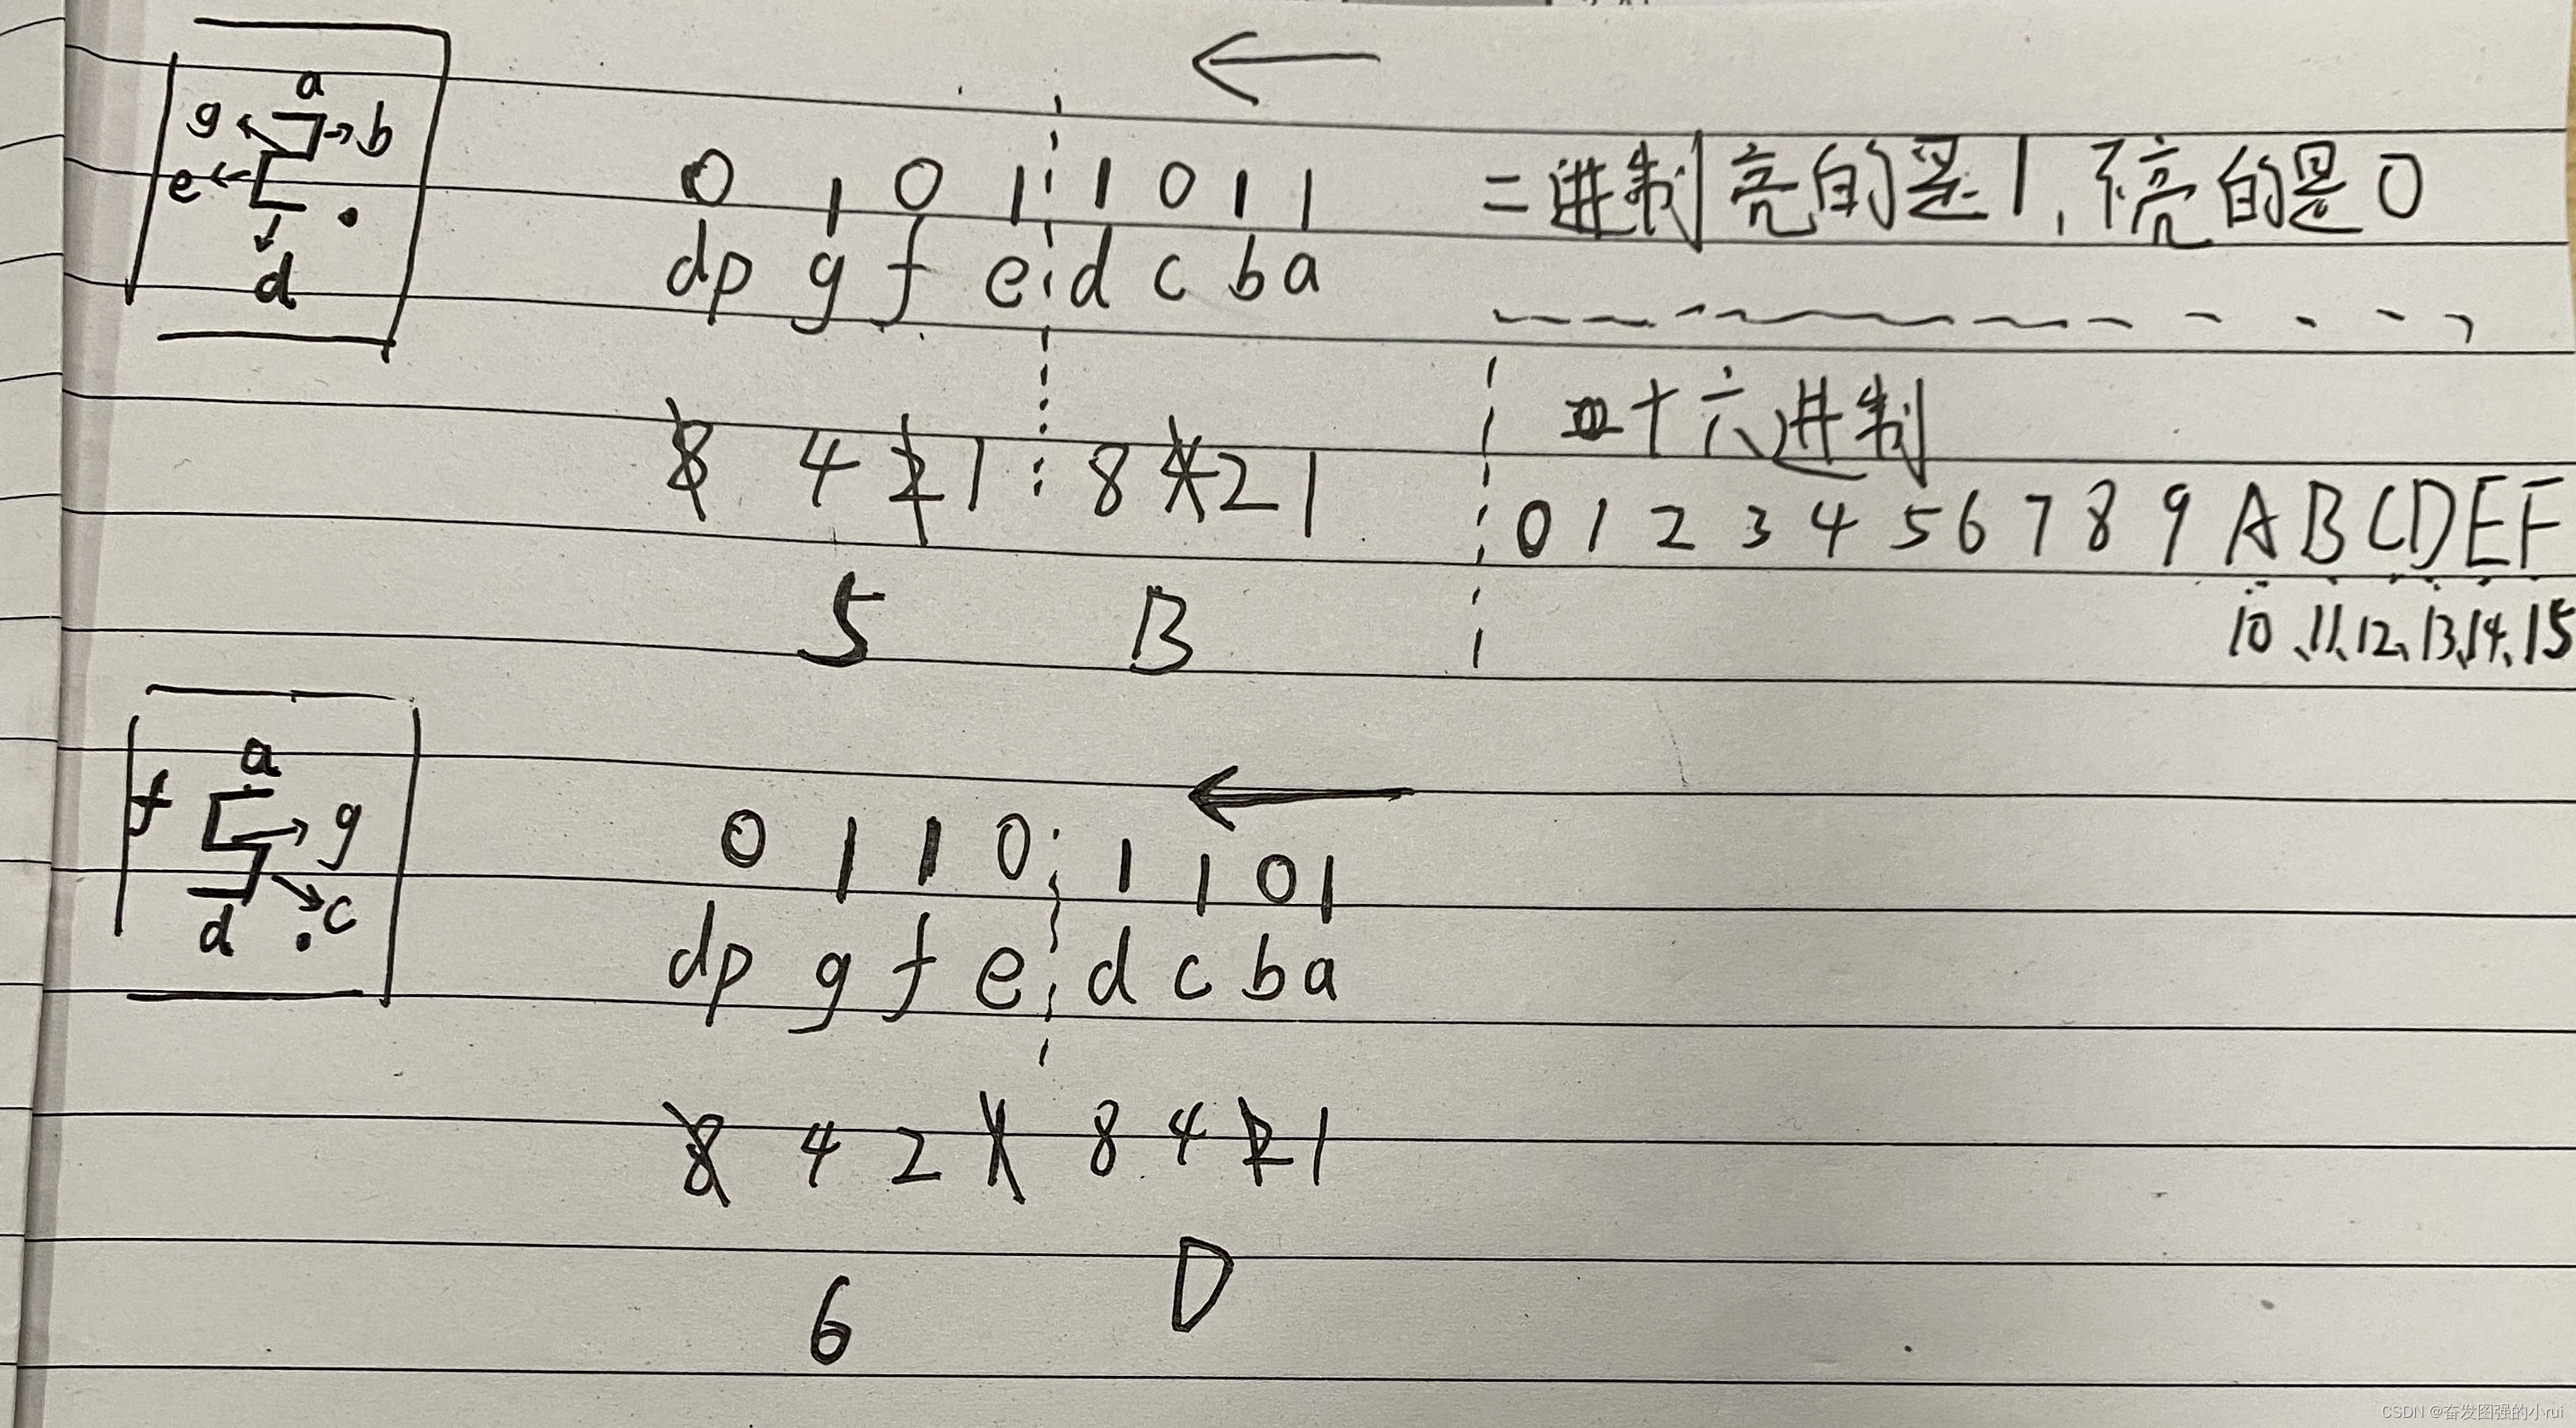 a
g b
e
d
0 1 0 1 1 0 1 1
dp g f e d c b a
二进制亮的是1,不亮的是0
8 4 2 1 8 4 2 1
5 B
十六进制
0 1 2 3 4 5 6 7 8 9 A B C D E F
10、11、12、13、14、15
a
f g
c
d
0 1 1 0 1 1 0 1
dp g f e d c b a
8 4 2 1 8 4 2 1
6 D
CSDN @奋发图强的小rui